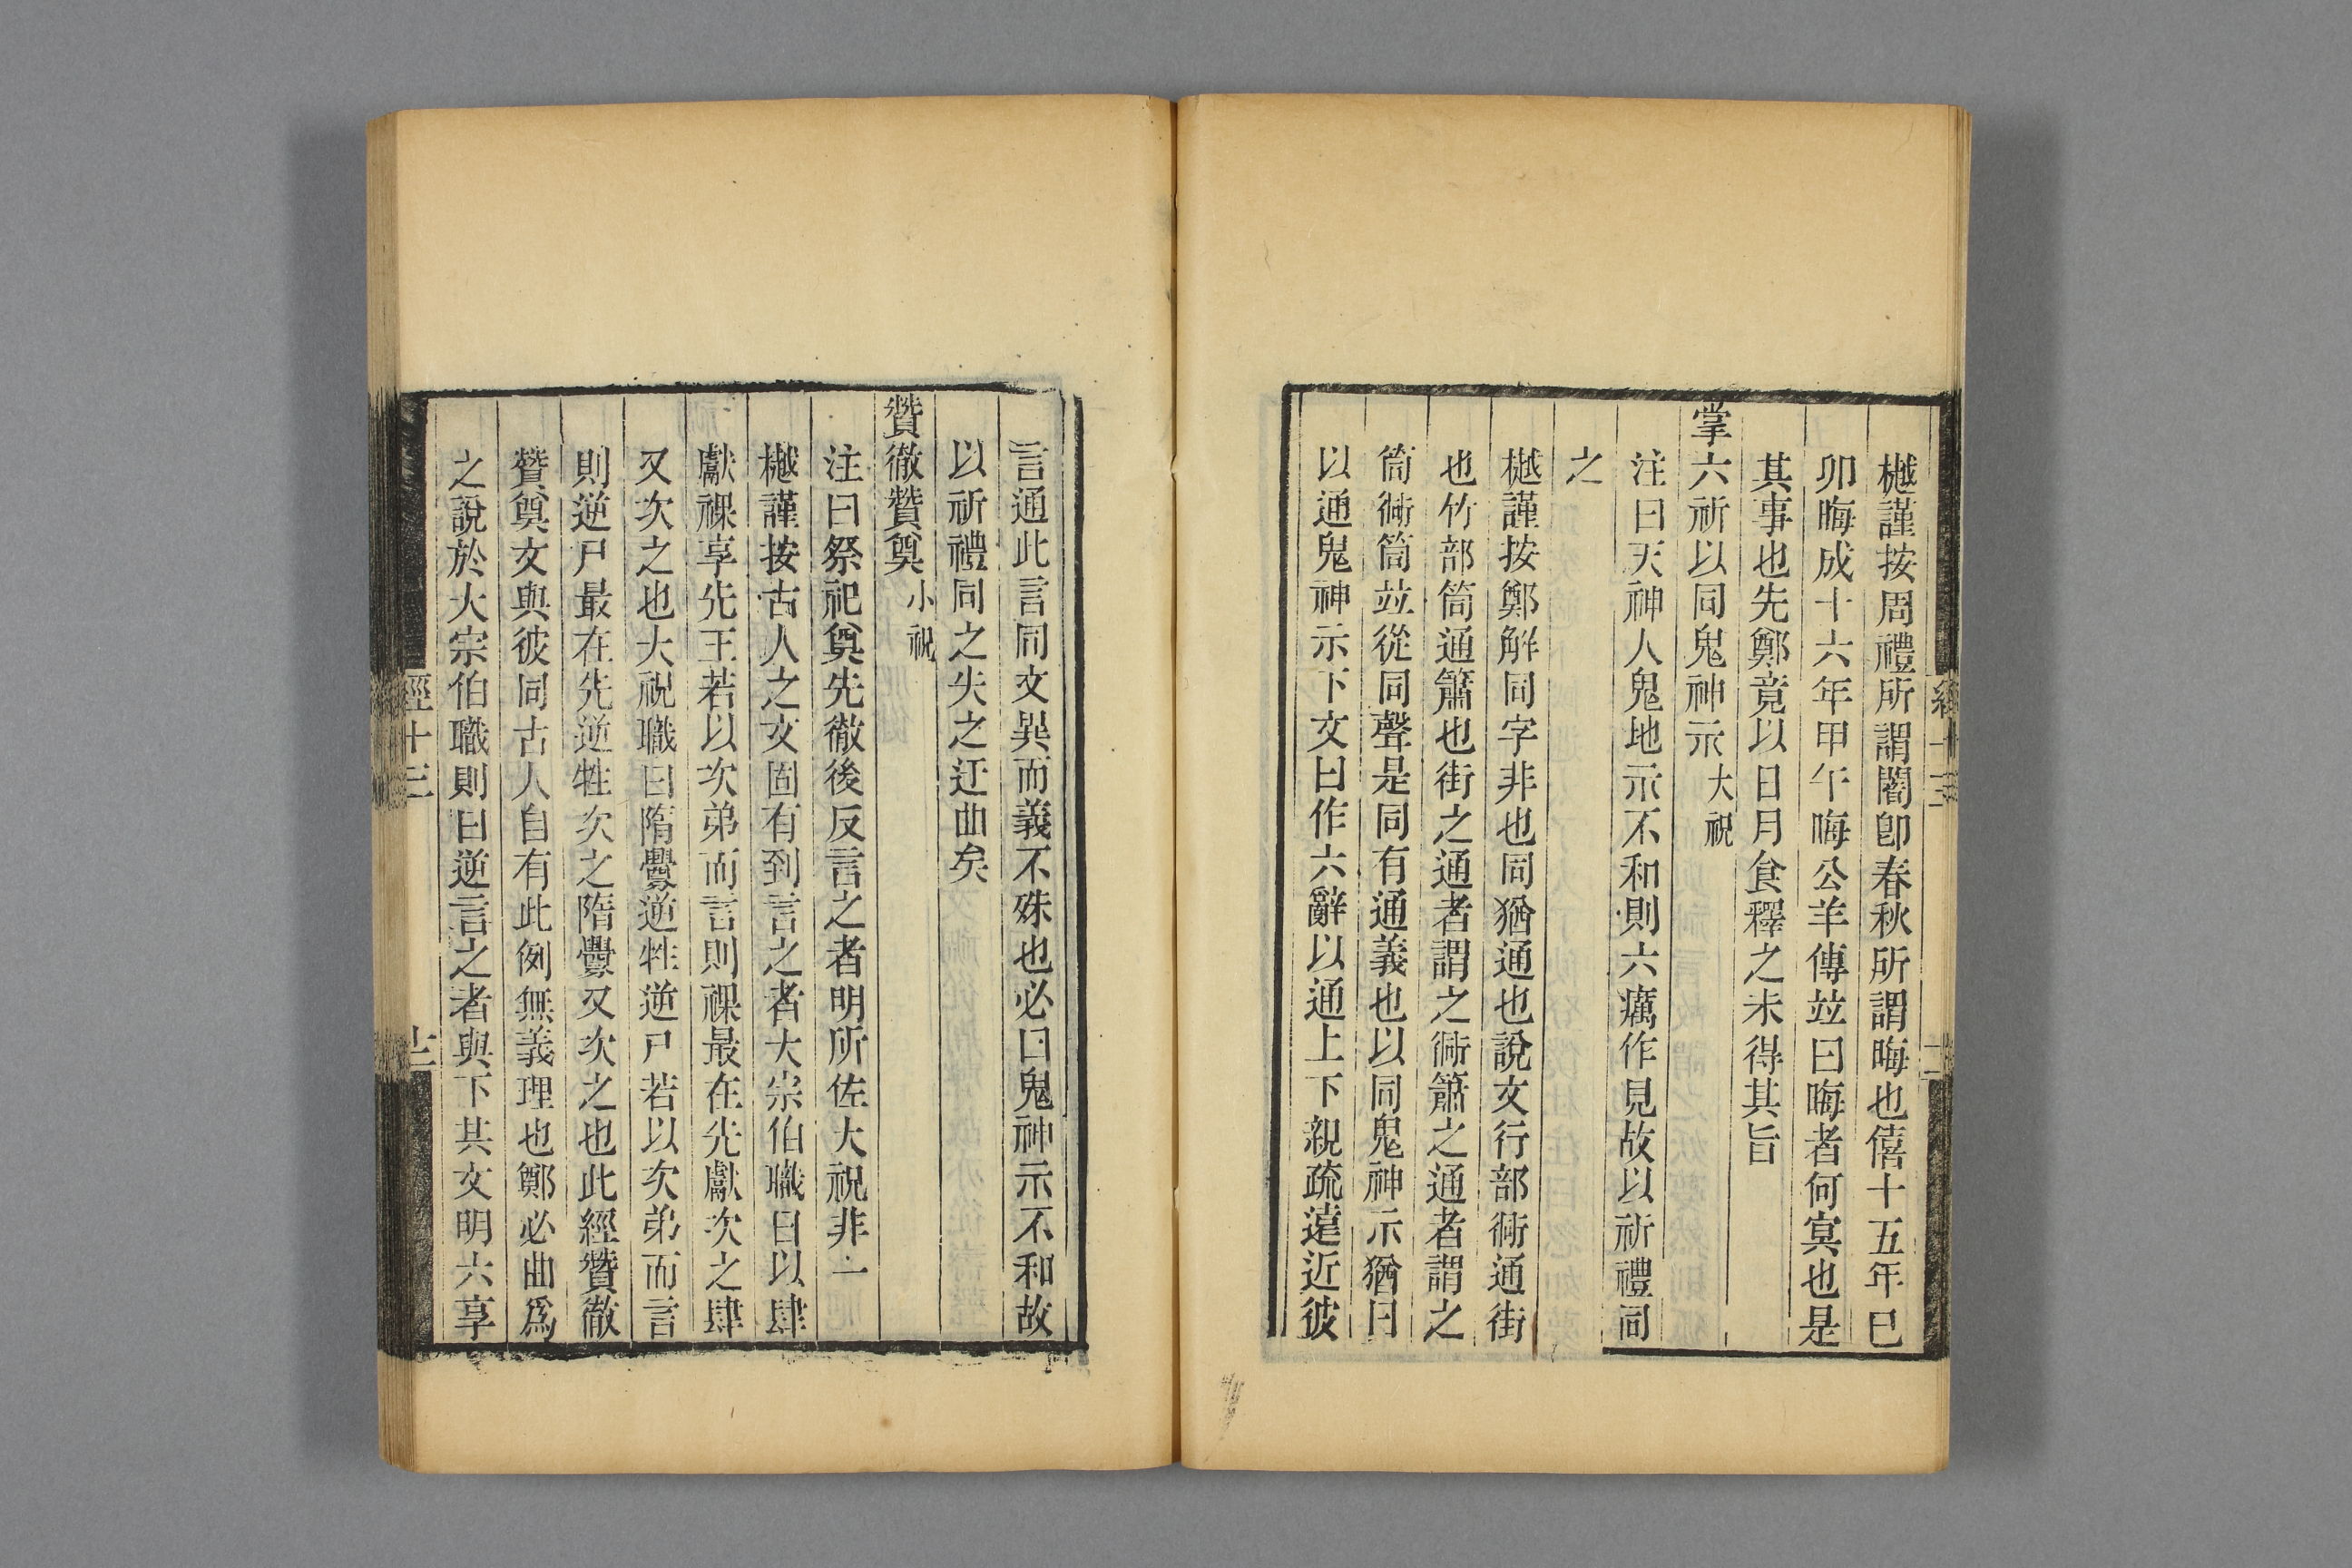 樾謹按周禮所謂闇卽春秋所謂晦也僖十五年巳
卯晦成十六年甲午晦公羊傳竝曰晦者何冥也是
其事也先鄭竟以日月食釋之未得其旨
掌六祈以同鬼神示大祝
注曰天神人鬼地示不和則六癘作見故以祈禮同
之
樾謹按鄭解同字非也同猶通也說文行部衕通街
也竹部筒通簫也街之通者謂之衕簫之通者謂之
筒衕筒竝從同聲是同有通義也以同鬼神示猶曰
以通鬼神示下文曰作六辭以通上下親疏遠近彼
言通此言同文異而義不殊也必曰鬼神示不和故
以祈禮同之失之迂曲矣
贊徹贊奠小祝
注曰祭祀奠先徹後反言之者明所佐大祝非一
樾謹按古人之文固有到言之者大宗伯職曰以肆
獻祼享先王若以次弟而言則祼最在先獻次之肆
又次之也大祝職曰隋釁逆牲逆尸若以次弟而言
則逆尸最在先逆牲次之隋釁又次之也此經贊徹
贊奠文與彼同古人自有此例無義理也鄭必曲爲
之說於大宗伯職則曰逆言之者與下共文明六享
經十三
十二